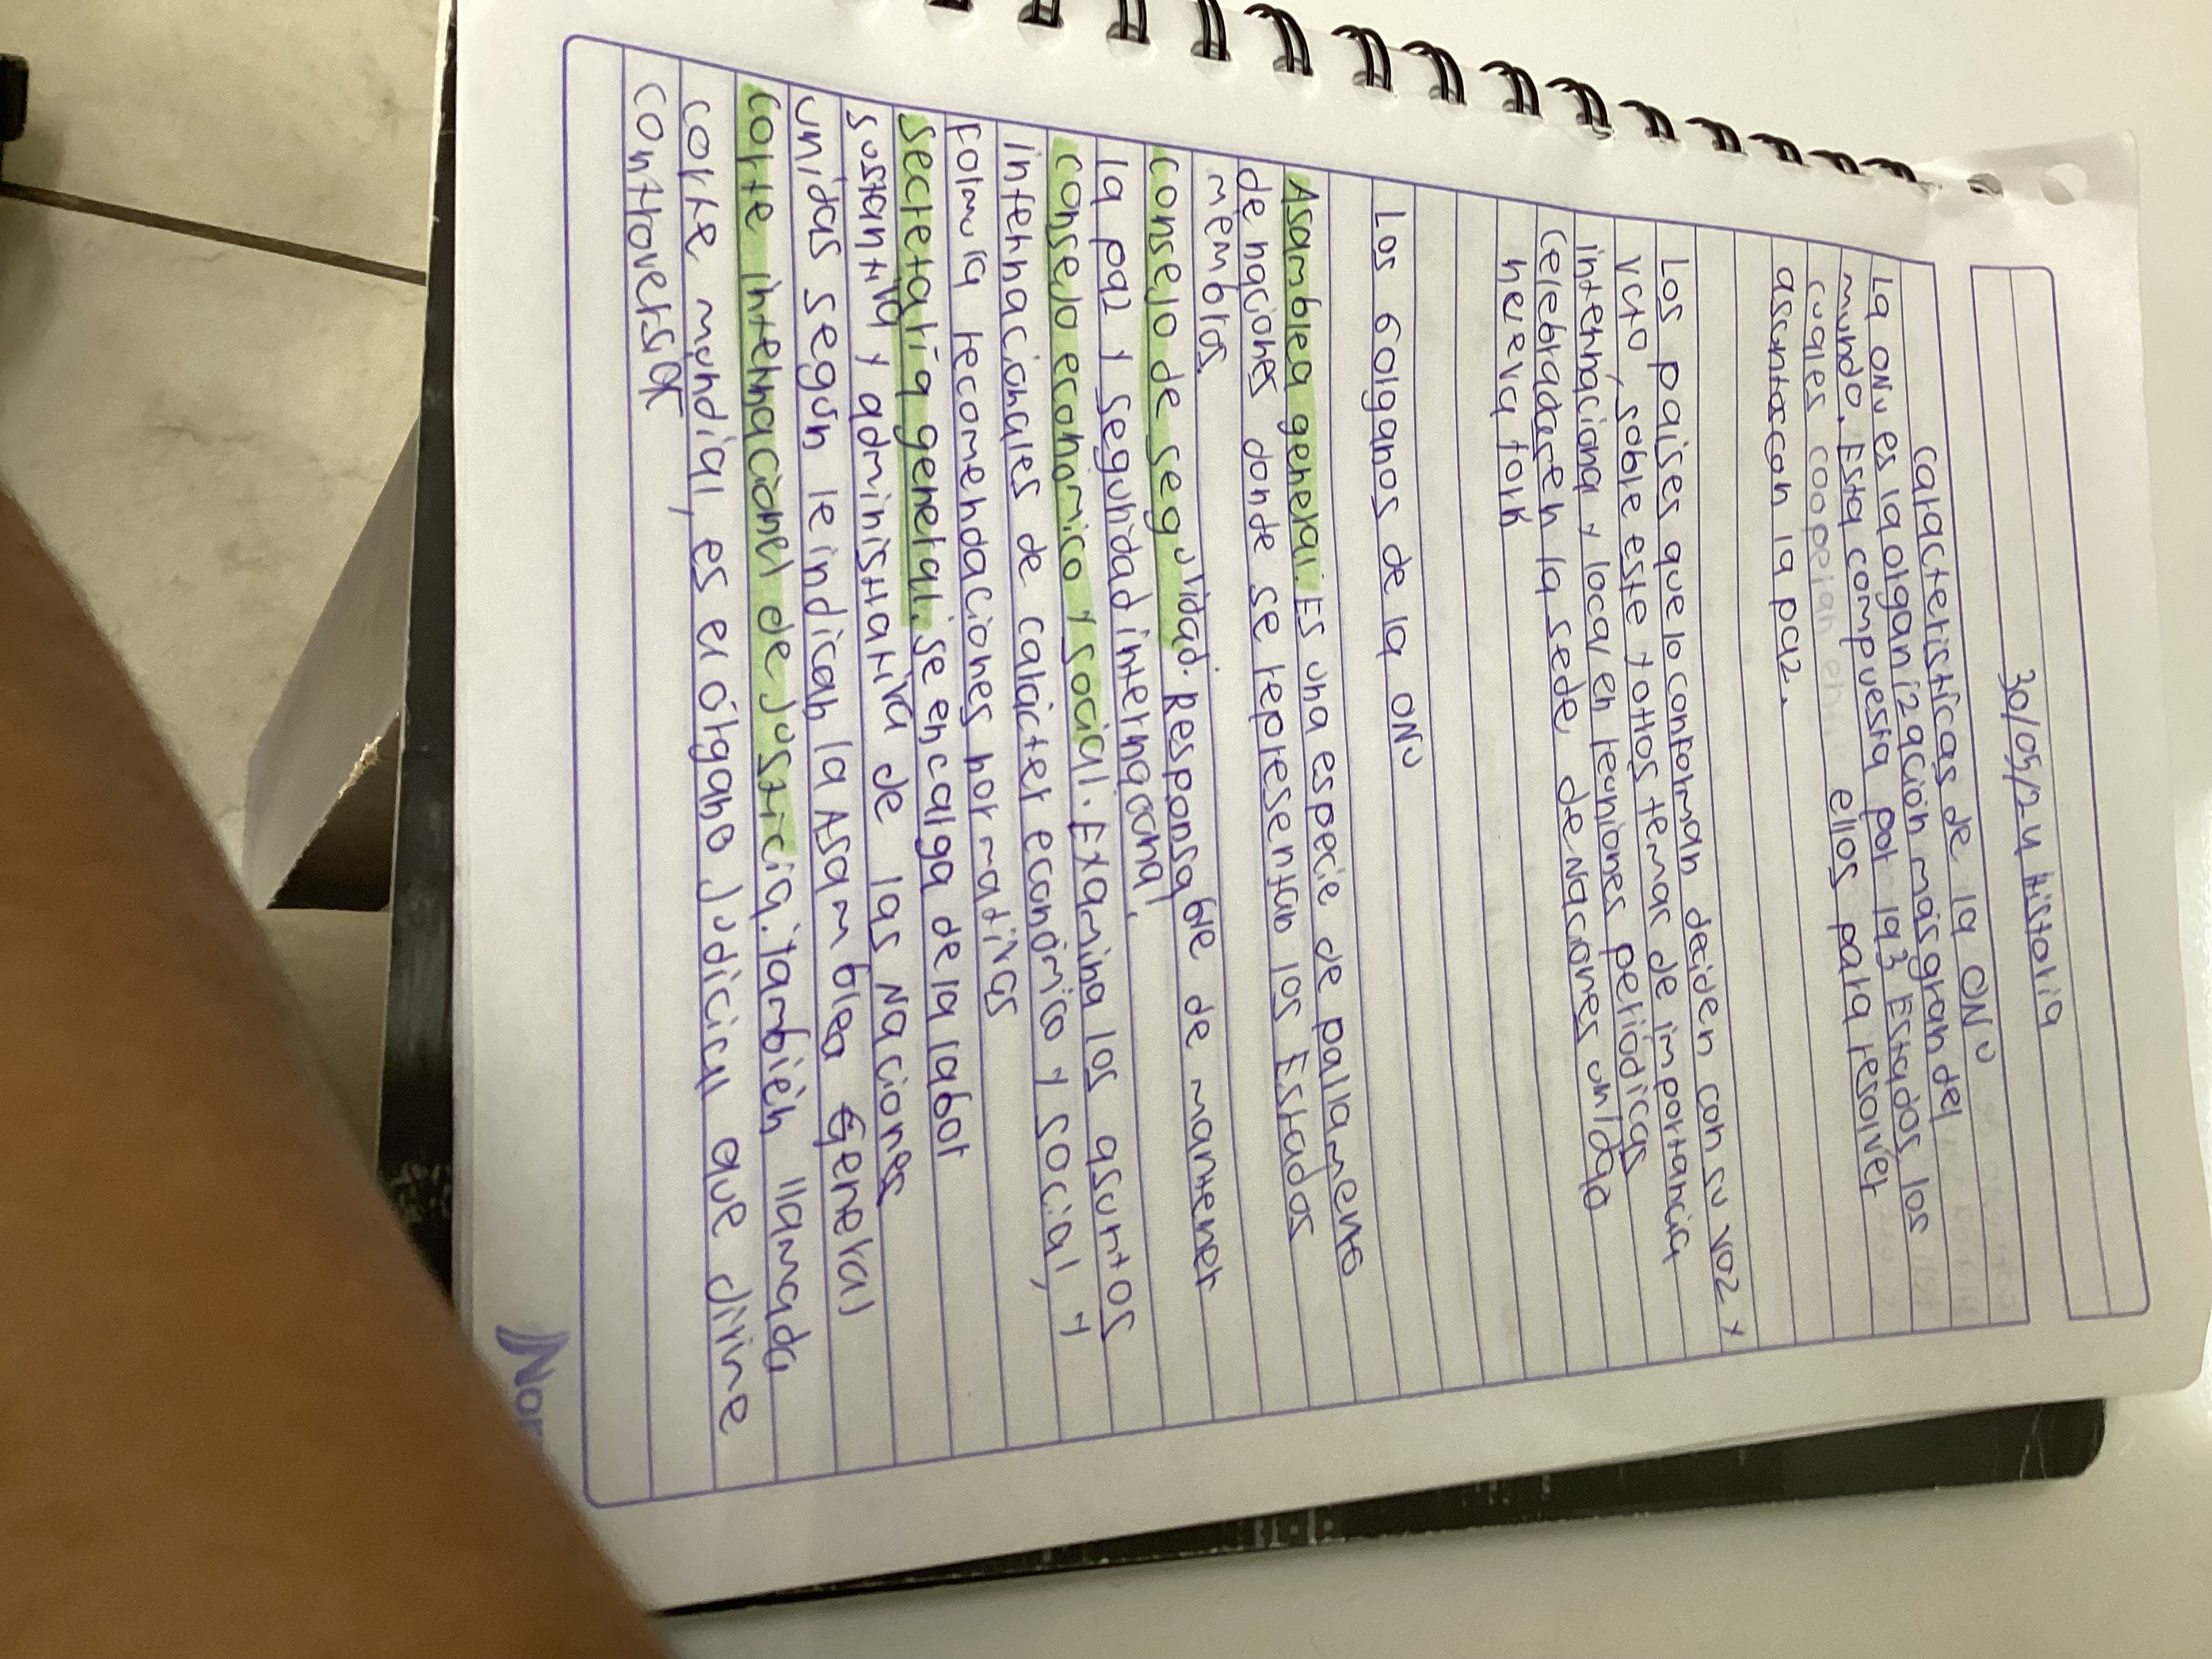 30/05/24 Historia
Características de la ONU
La ONU es la organización más gran del
mundo. Esta compuesta por 193 Estados, los
cuales cooperan entre ellos para resolver
asuntos con la paz.
Los paises que lo conforman deciden con su voz y
voto, sobre este y otros temas de importancia
internaciona y local en reuniones periódicas
celebradas en la sede, de Naciones unidas
nueva York
Los 6 organos de la ONU
Asamblea general. Es una especie de parlamento
de naciones donde se representan los Estados
miembros.
Consejo de seguridad. Responsable de mantener
la paz y seguridad internacional.
Consejo económico y social. Examina los asuntos
internacionales de carácter económico y social, y
Formula recomendaciones normativas
Secretaría general. Se encarga de la labor
sustantiva y administrativa de las Naciones
unidas según le indican la Asamblea General
Corte internacional de Justicia. También llamada
corte mundial, es el órgano Judicial que dirime
controversia
Nor